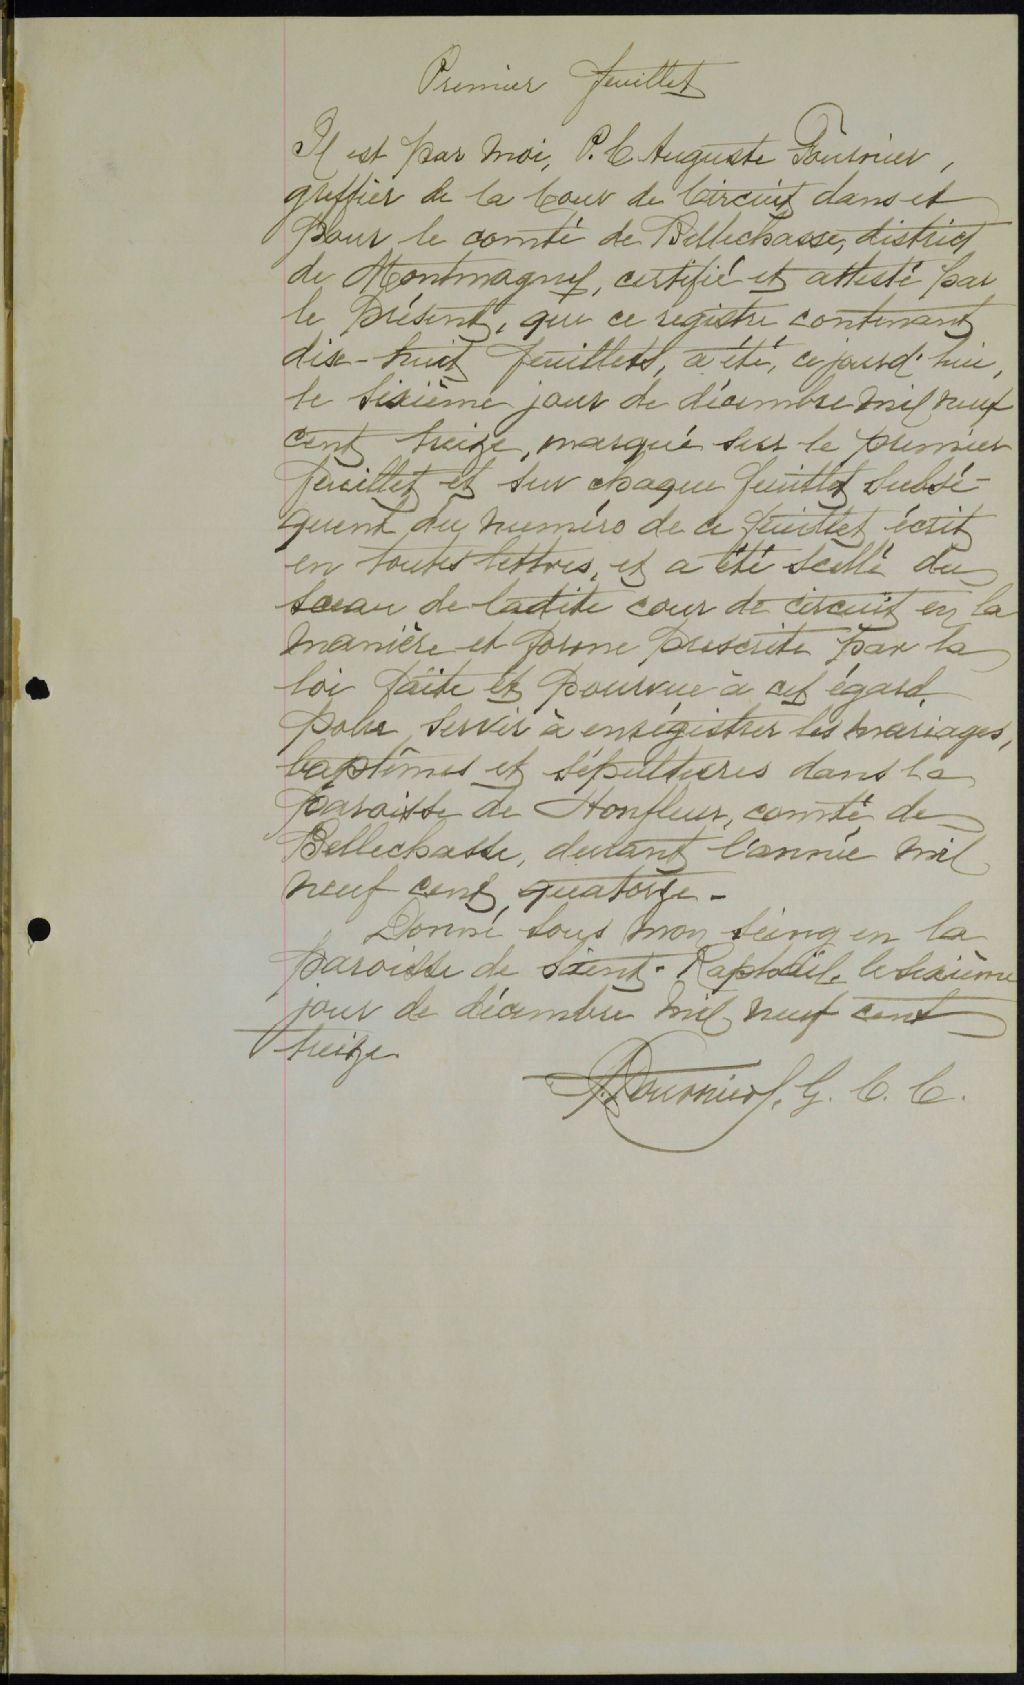 Premier feuillet
Il est par moi, P. C. Auguste Fournier,
greffier de la Cour de Circuit dans et
pour le comté de Bellechasse, district
de Montmagny, certifié et attesté par
le présent, que ce registre contenant
dix-huit feuillets, a été, ce jourd'hui,
le sixième jour de décembre mil neuf
cent treize, marqué sur le premier
feuillet et sur chaque feuillet subsé-
quent du numéro de ce feuillet écrit
en toutes lettres, et a été scellé du
sceau de ladite cour de circuit en la
manière et forme prescrite par la
loi faite et pourvue à cet égard,
pour servir à enrégistrer les mariages,
baptêmes et sépultures dans la
paroisse de Honfleur, comté de
Bellechasse, durant l'année mil
neuf cent quatorze.-
Donné sous mon seing en la
paroisse de Saint-Raphaël, le sixième
jour de décembre mil neuf cent
treize
A. Fournier, G. C. C.